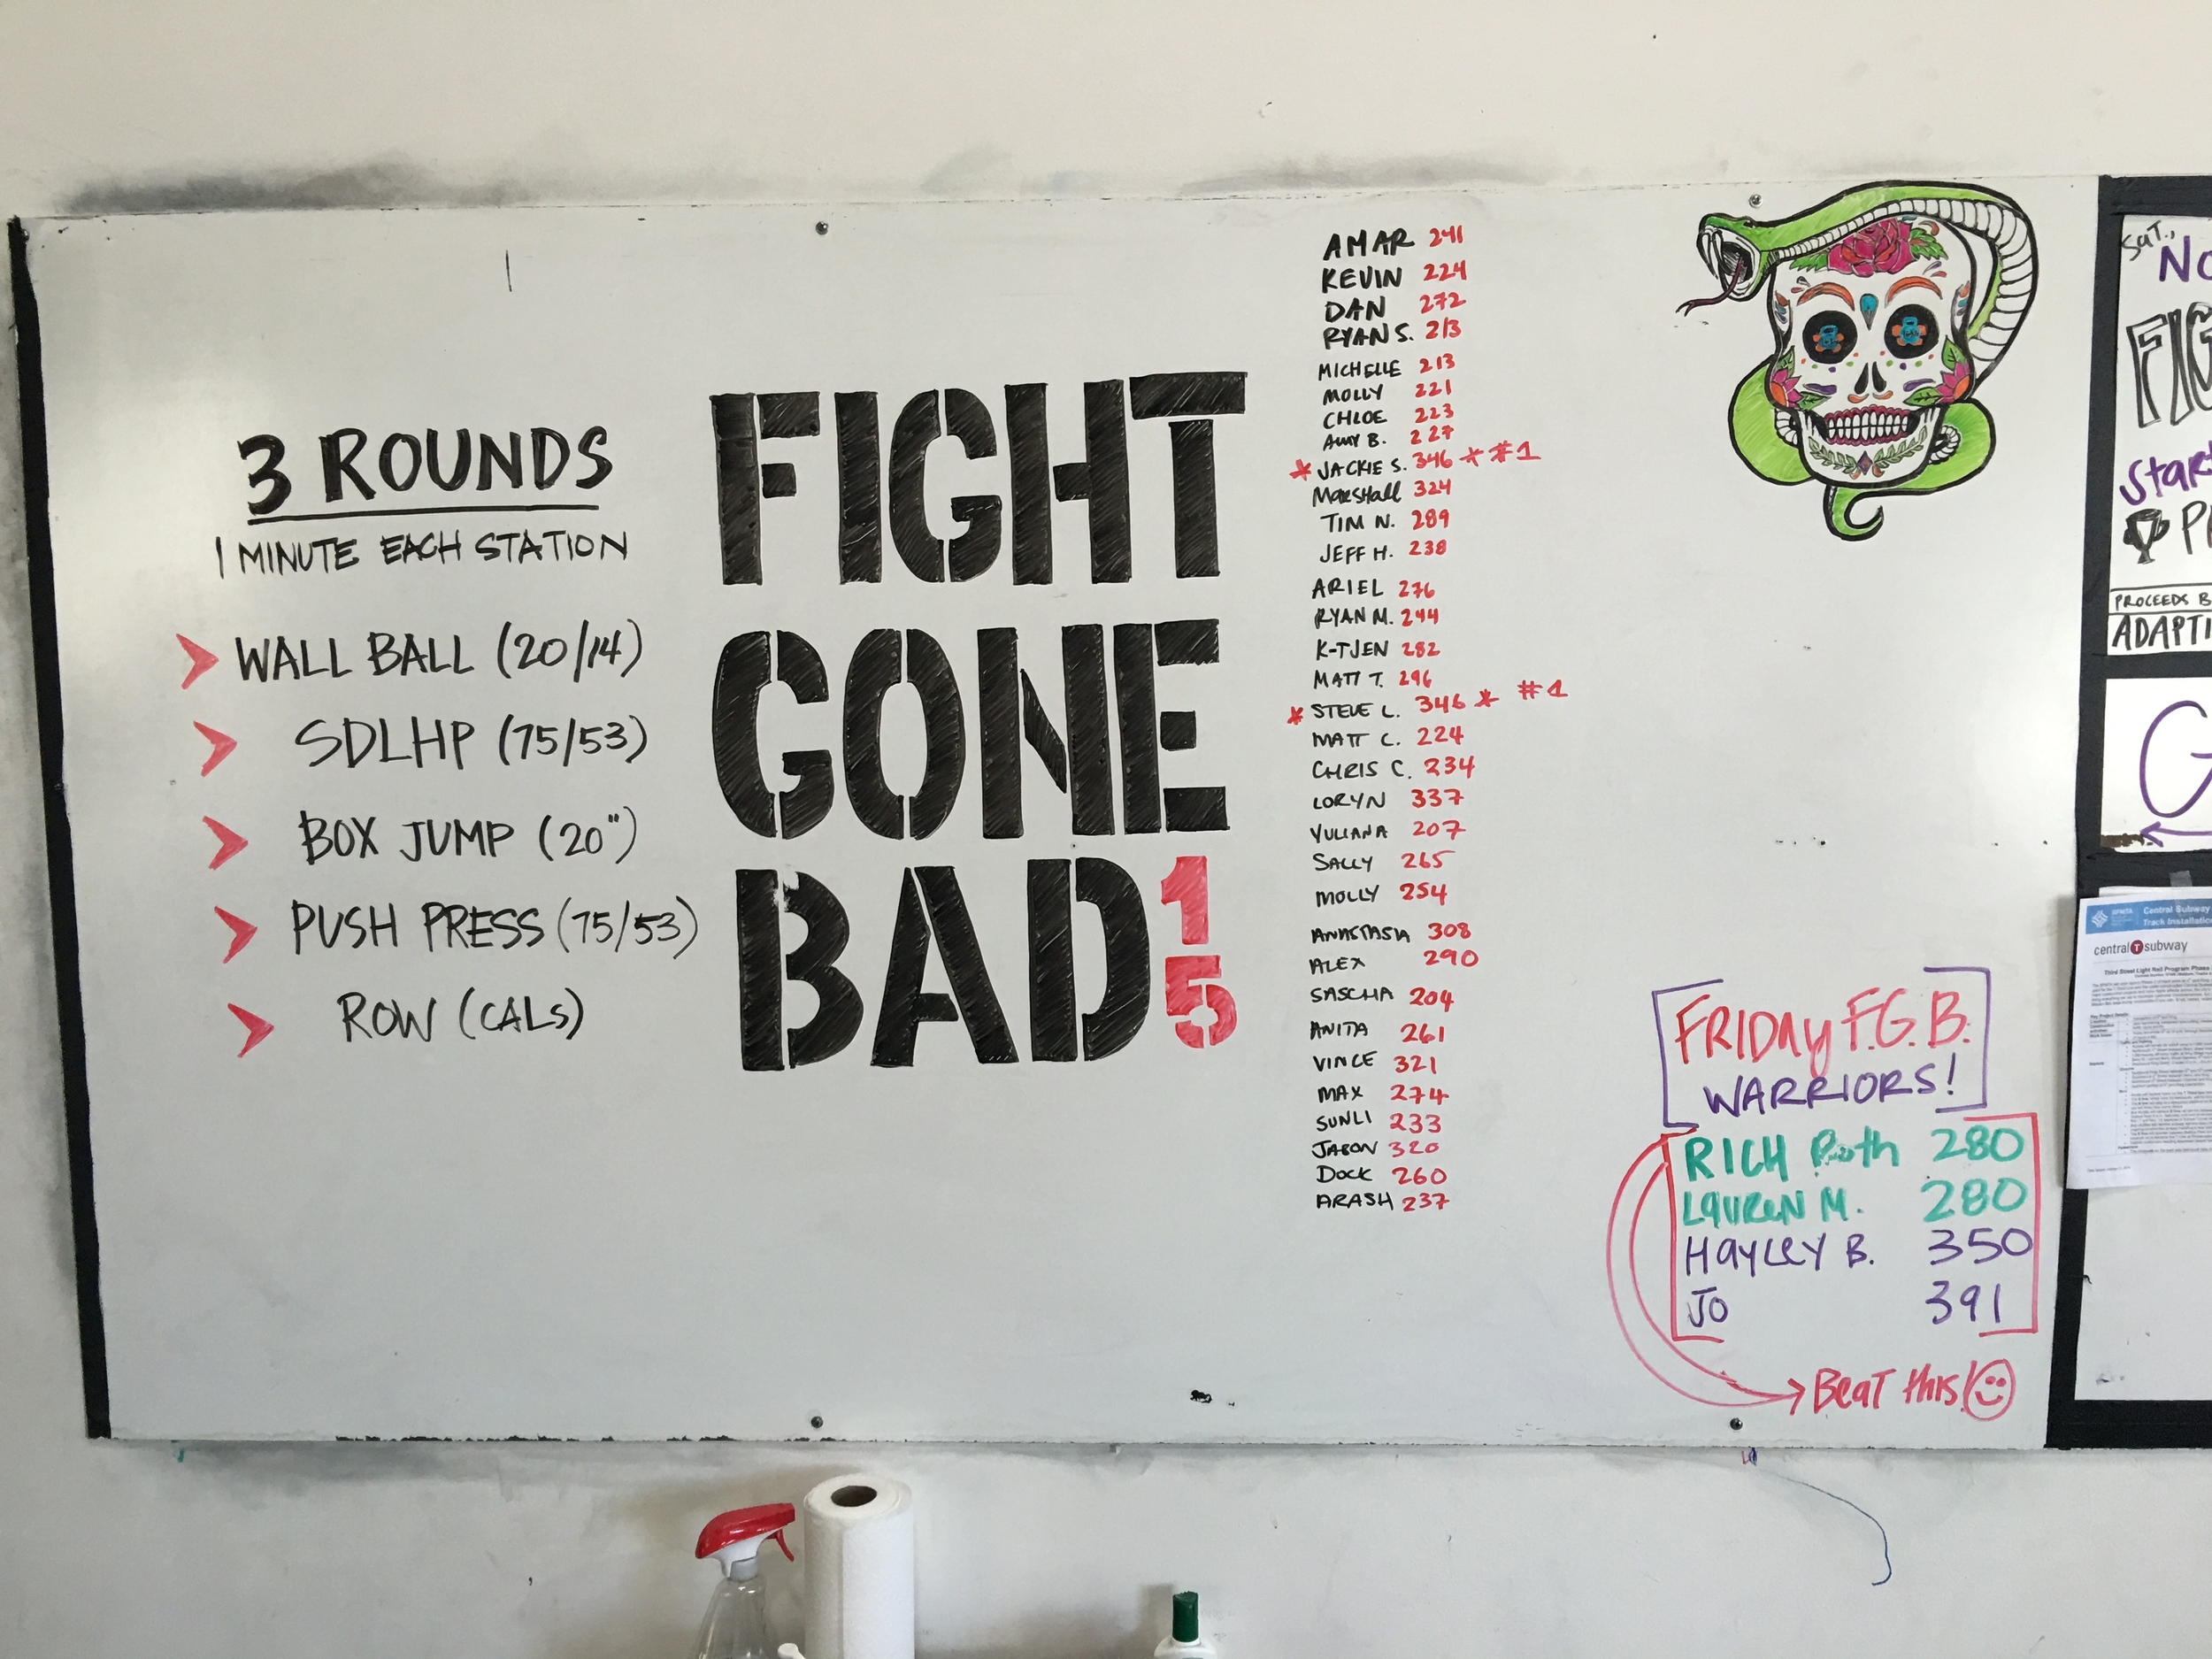 3 ROUNDS
1 MINUTE EACH STATION
WALL BALL (20/14)
SDLHP (75/53)
BOX JUMP (20")
PUSH PRESS (75/53)
ROW (CALS)
FIGHT
GONE
BAD 15
AMAR 241
KEVIN 224
DAN 272
RYAN S. 213
MICHELLE 213
MOLLY 221
CHLOE 223
AMY B. 227
* JACKIE S. 346 * #1
MARSHALL 324
TIM N. 289
JEFF H. 238
ARIEL 276
RYAN M. 244
K-TJEN 282
MATT T. 296
* STEVE L. 346 * #1
MATT C. 224
CHRIS C. 234
LORYN 337
YULIANA 207
SALLY 265
MOLLY 254
ANASTASIA 308
ALEX 290
SASCHA 204
ANITA 261
VINCE 321
MAX 274
SUNLI 233
JASON 320
DOCK 260
ARASH 237
FRIDAY F.G.B.
WARRIORS!
RICH Roth 280
LAUREN M. 280
HAYLEY B. 350
JO 391
BEAT this!
SAT.,
NO
FIG
START
PR
PROCEEDS B
ADAPTI
G
Central Subway
Track Installation
central T subway
Third Street Light Rail Program Phase